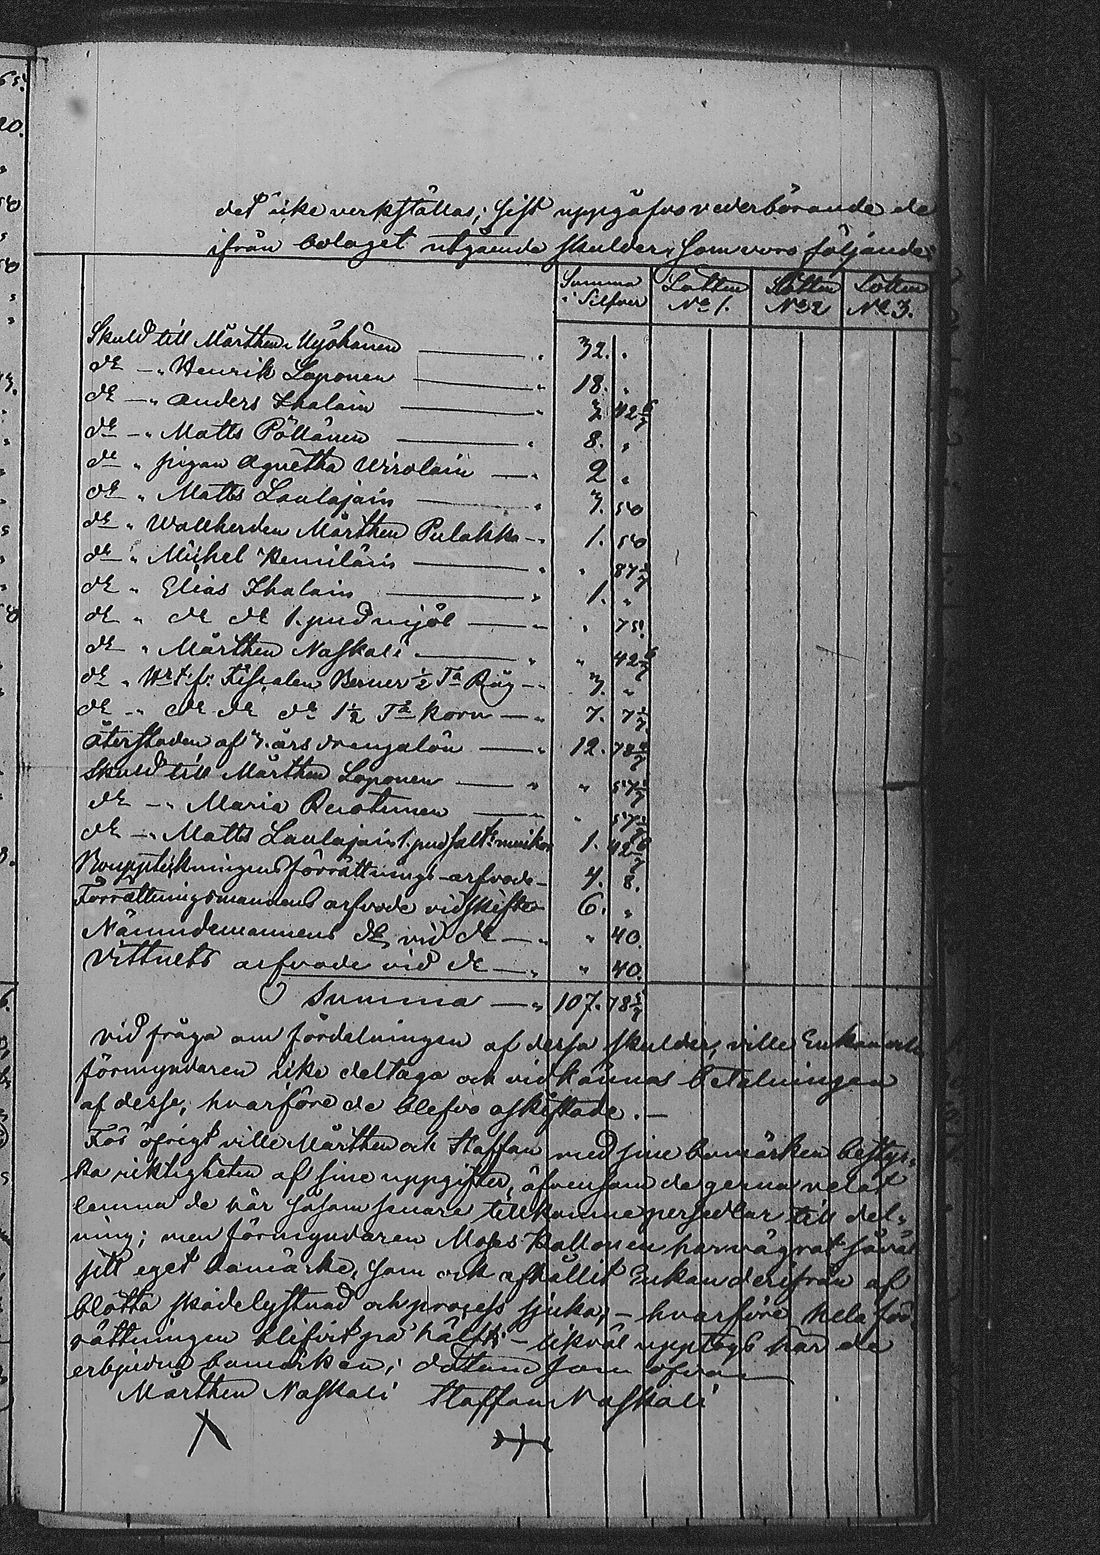 det icke verkställas; sist uppgåfvo vederbörande de
ifrån bolaget utgående skulder, som voro följande:
Summa i Silfver Lotten No 1. Lotten No 2 Lotten No 3.
Skuld till Mårthen Myöhänen " 32. "
do — " Henrik Loponen " 18. "
do — " Anders Ihalain " 7. 42 6/7
do — " Matts Pöllänen " 8. "
do " pigan Agnetha Wirolain " 2 "
do " Matts Laulajain " 7. 50
do " Wallherden Mårthen Pulakka " 1. 50
do " Michel Kemiläin " " 87
do " Elias Ihalain " 1. "
do " do do 1. pud mjöl " " 75.
do " Mårthen Naskali " " 42 6/7
do " Hr t.f. Fiscalen Berner 1/2 Ta Råg " 3. "
do " do do do 1 1/2 Ta korn " 7. 7 1/7
återstoden af 7. års drengalön " 12. 78 4/7
Skuld till Mårthen Loponen " " 57 1/7
do — " Maria Ruotsinen " 57 1/7
do — " Matts Laulajain 1. pud salt 1. 42 6/7
Bouppteckningens förrättnings arfvode 4. 8.
Förrättningsmannens arfvode vid skifte 6. "
Nämndemannens do vid do " " 40.
Vittnets arfvode vid do " " 40.
Summa " 107. 78 4/7
Vid fråga om fördelningen af dessa skulder, ville Enkan och
förmyndaren icke deltaga och vidkännas betalningen
af desse, hvarföre de blefvo oskiftade. —
För öfrigt ville Mårthen och Staffan med sine bomärken bestyr-
ka riktigheten af sine uppgifter, äfvensom de gerna velat
lemna de vår såsom senare tillkomne persedlar till del-
ning; men förmyndaren Moses Hallonen har vägrat såväl
sitt eget bomärke, som ock afhållit Enkan derifrån af
blotta skadelystnad och process sjuka, — hvarföre hela för-
rättningen blifvit på hälft; — likväl upptogs här de
erbjudne bomärken; datum som ofvan
Mårthen Naskali Staffan Naskali